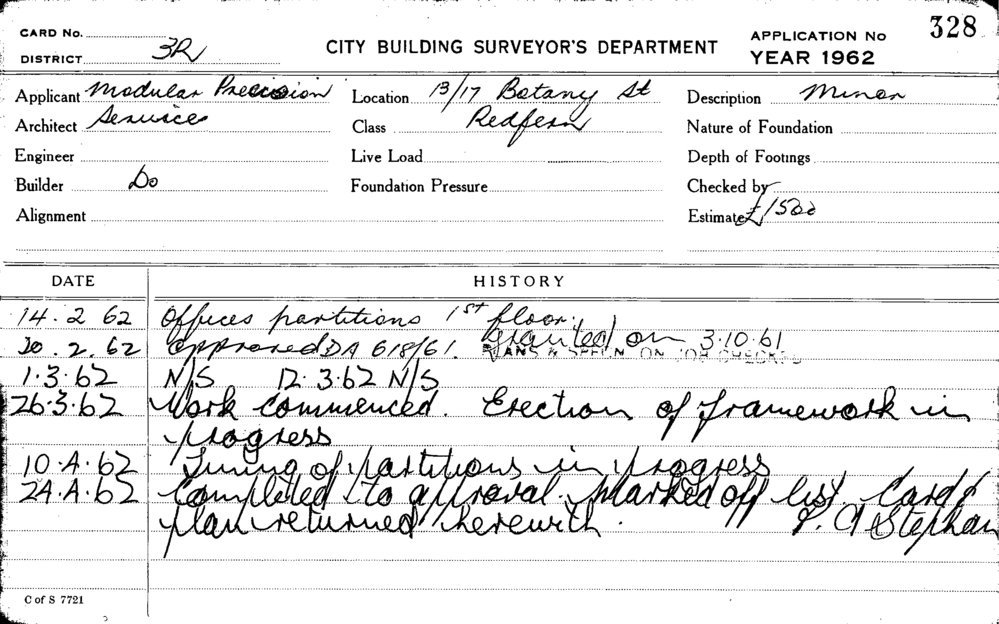 CARD No.
DISTRICT 3R
CITY BUILDING SURVEYOR'S DEPARTMENT
APPLICATION No 328
YEAR 1962
Applicant Modular Precision
Location 13/17 Botany St
Description Minor
Architect Services
Class Redfern
Nature of Foundation
Engineer
Live Load
Depth of Footings
Builder Do
Foundation Pressure
Checked by
Alignment
Estimate £1500
DATE HISTORY
14.2 62 Offices partitions 1st floor.
20.2.62 approved DA 618/61. Granted on 3.10.61
PLANS & SPECN ON JOB CHECKED
1.3.62 N/S 12.3.62 N/S
26.3.62 Work commenced. Erection of framework in
progress
10.4.62 Lining of partitions in progress
24.4.62 Completed to approval. Marked off list. Card &
plan returned herewith. Stephan
C of S 7721